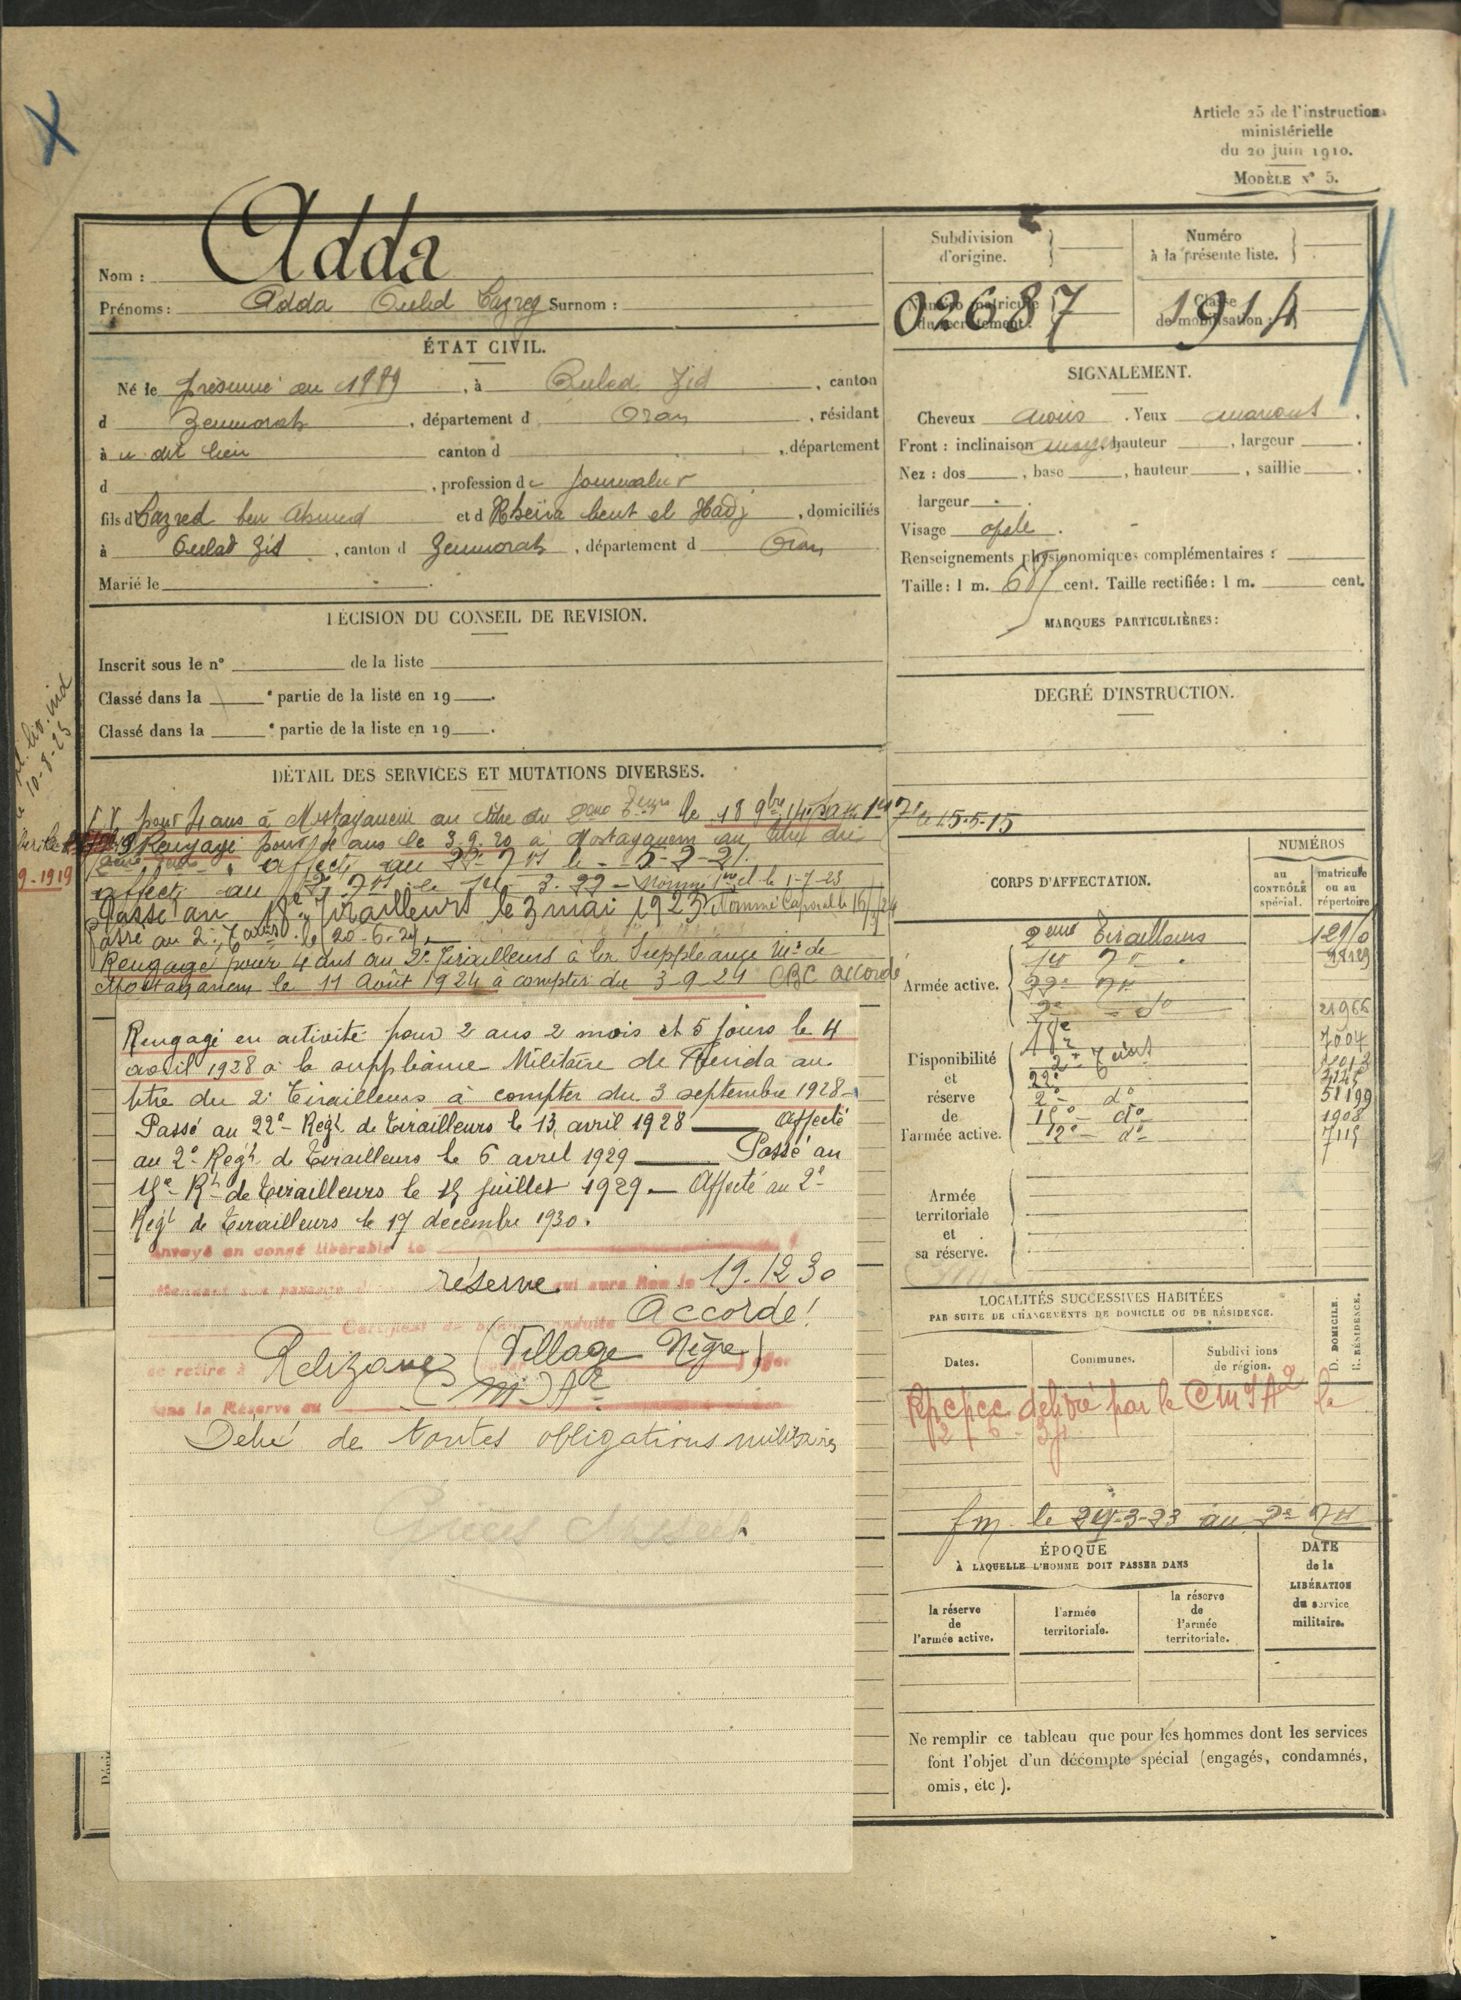 Article 25 de l'instruction
ministérielle
du 20 juin 1910.
MODÈLE N° 5.
Nom : Adda
Prénoms : Adda Ouled Lazreg Surnom :
Subdivision d'origine.
Numéro à la présente liste.
Numéro matricule du recrutement : 02687
Classe de mobilisation : 1914
ÉTAT CIVIL.
Né le présumé en 1889, à Ouled Zid, canton
d Zemmorah, département d Oran, résidant
à u dit lieu canton d , département
d , profession de journalier
fils d Lazred ben Ahmed et d Kheïra bent el Hadj, domiciliés
à Oulad Zid, canton d Zemmorah, département d Oran
Marié le .
SIGNALEMENT.
Cheveux noirs . Yeux marrons .
Front : inclinaison moyen hauteur , largeur .
Nez : dos , base , hauteur , saillie ,
largeur .
Visage ovale .
Renseignements physionomiques complémentaires :
Taille : 1 m. cent. Taille rectifiée : 1 m. cent.
MARQUES PARTICULIÈRES :
DÉCISION DU CONSEIL DE REVISION.
Inscrit sous le n° de la liste
Classé dans la e partie de la liste en 19 .
Classé dans la e partie de la liste en 19 .
DEGRÉ D'INSTRUCTION.
liv. ind
10-8-25
9-1919
DÉTAIL DES SERVICES ET MUTATIONS DIVERSES.
E V pour 4 ans à Mostaganem au titre du 2eme le 18 9bre 14 le 15.5.15
Rengagé pour 4 ans le 3.9.20 à Mostaganem au titre du
affecté au 22e le 5-2-21.
affecté au le 3.22 - Nommé le 1-7-23
Passé au 18e Tirailleurs le 3 mai 1923 Nommé Caporal le
Passé au 2e le 20-6-24
Rengagé pour 4 ans au 2e Tirailleurs à la Suppléance Mre de
Mostaganem le 11 Août 1924 à compter du 3-9-24 CBC accordé
Rengagé en activité pour 2 ans 2 mois et 5 jours le 4
avril 1928 à la suppléance Militaire de Frenda au
titre du 2e Tirailleurs à compter du 3 septembre 1928
Passé au 22e Regt. de Tirailleurs le 13 avril 1928 Affecté
au 2e Regt. de Tirailleurs le 6 avril 1929 Passé au
15e Rt de Tirailleurs le 15 juillet 1929 Affecté au 2e
Regt de Tirailleurs le 17 décembre 1930.
Envoyé en congé libérable le
réserve qui aura lieu le 19.12 30
Certificat de bonne conduite Accordé !
se retire à Relizane (Village Nègre)
dans la Réserve au
Délié de toutes obligations militaires
CORPS D'AFFECTATION.
NUMÉROS
au CONTRÔLE spécial.
matricule ou au répertoire
Armée active.
2eme Tirailleurs
Disponibilité et réserve de l'armée active.
22e
2e do
15e do
12e do
21966
7004
51199
1908
7115
Armée territoriale et sa réserve.
LOCALITÉS SUCCESSIVES HABITÉES
PAR SUITE DE CHANGEMENTS DE DOMICILE OU DE RÉSIDENCE.
Dates.
Communes.
Subdivisions de région.
D. DOMICILE.
R. RÉSIDENCE.
délivré par le CMI A2 le
fm le 24-3-23 au 2e
ÉPOQUE
À LAQUELLE L'HOMME DOIT PASSER DANS
la réserve de l'armée active.
l'armée territoriale.
la réserve de l'armée territoriale.
DATE de la LIBÉRATION du service militaire.
Ne remplir ce tableau que pour les hommes dont les services
font l'objet d'un décompte spécial (engagés, condamnés,
omis, etc ).